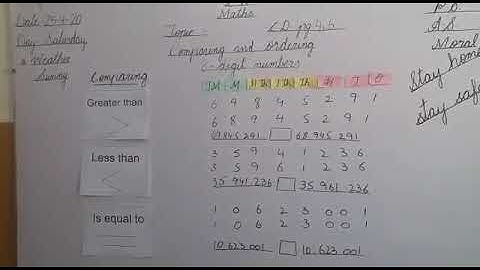 Maths
Date 25-4-20
Day Saturday
Weather
Sunny
Topic:-
pg 4,
Comparing and ordering
-digit numbers
Comparing
Greater than
>
Less than
<
Is equal to
=
TM M H Th T Th Th H T O
6 9 8 4 5 2 9 1
6 8 9 4 5 2 9 1
69 845 291 68 945 291
3 5 9 4 1 2 3 6
3 5 9 6 1 2 3 6
35 941 236 35 961 236
1 0 6 2 3 0 0 1
1 0 6 2 3 0 0 1
10 623 001 10 623 001
A.S.
Moral
Stay home
Stay safe